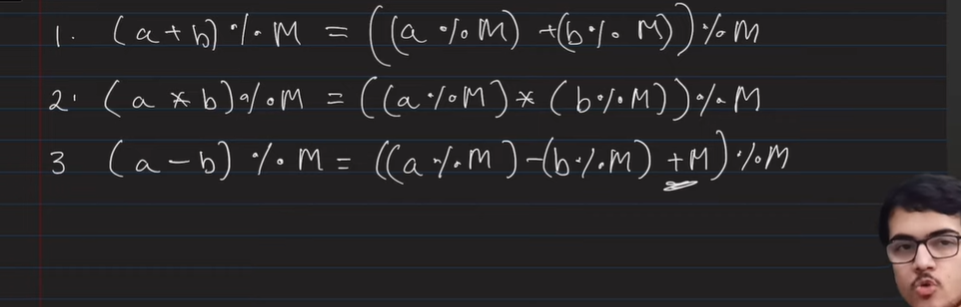 1. (a+b) % M = ((a % M) +(b % M)) % M
2. (a * b) % M = ((a % M) * (b % M)) % M
3 (a-b) % M = ((a % M) -(b % M) +M) % M